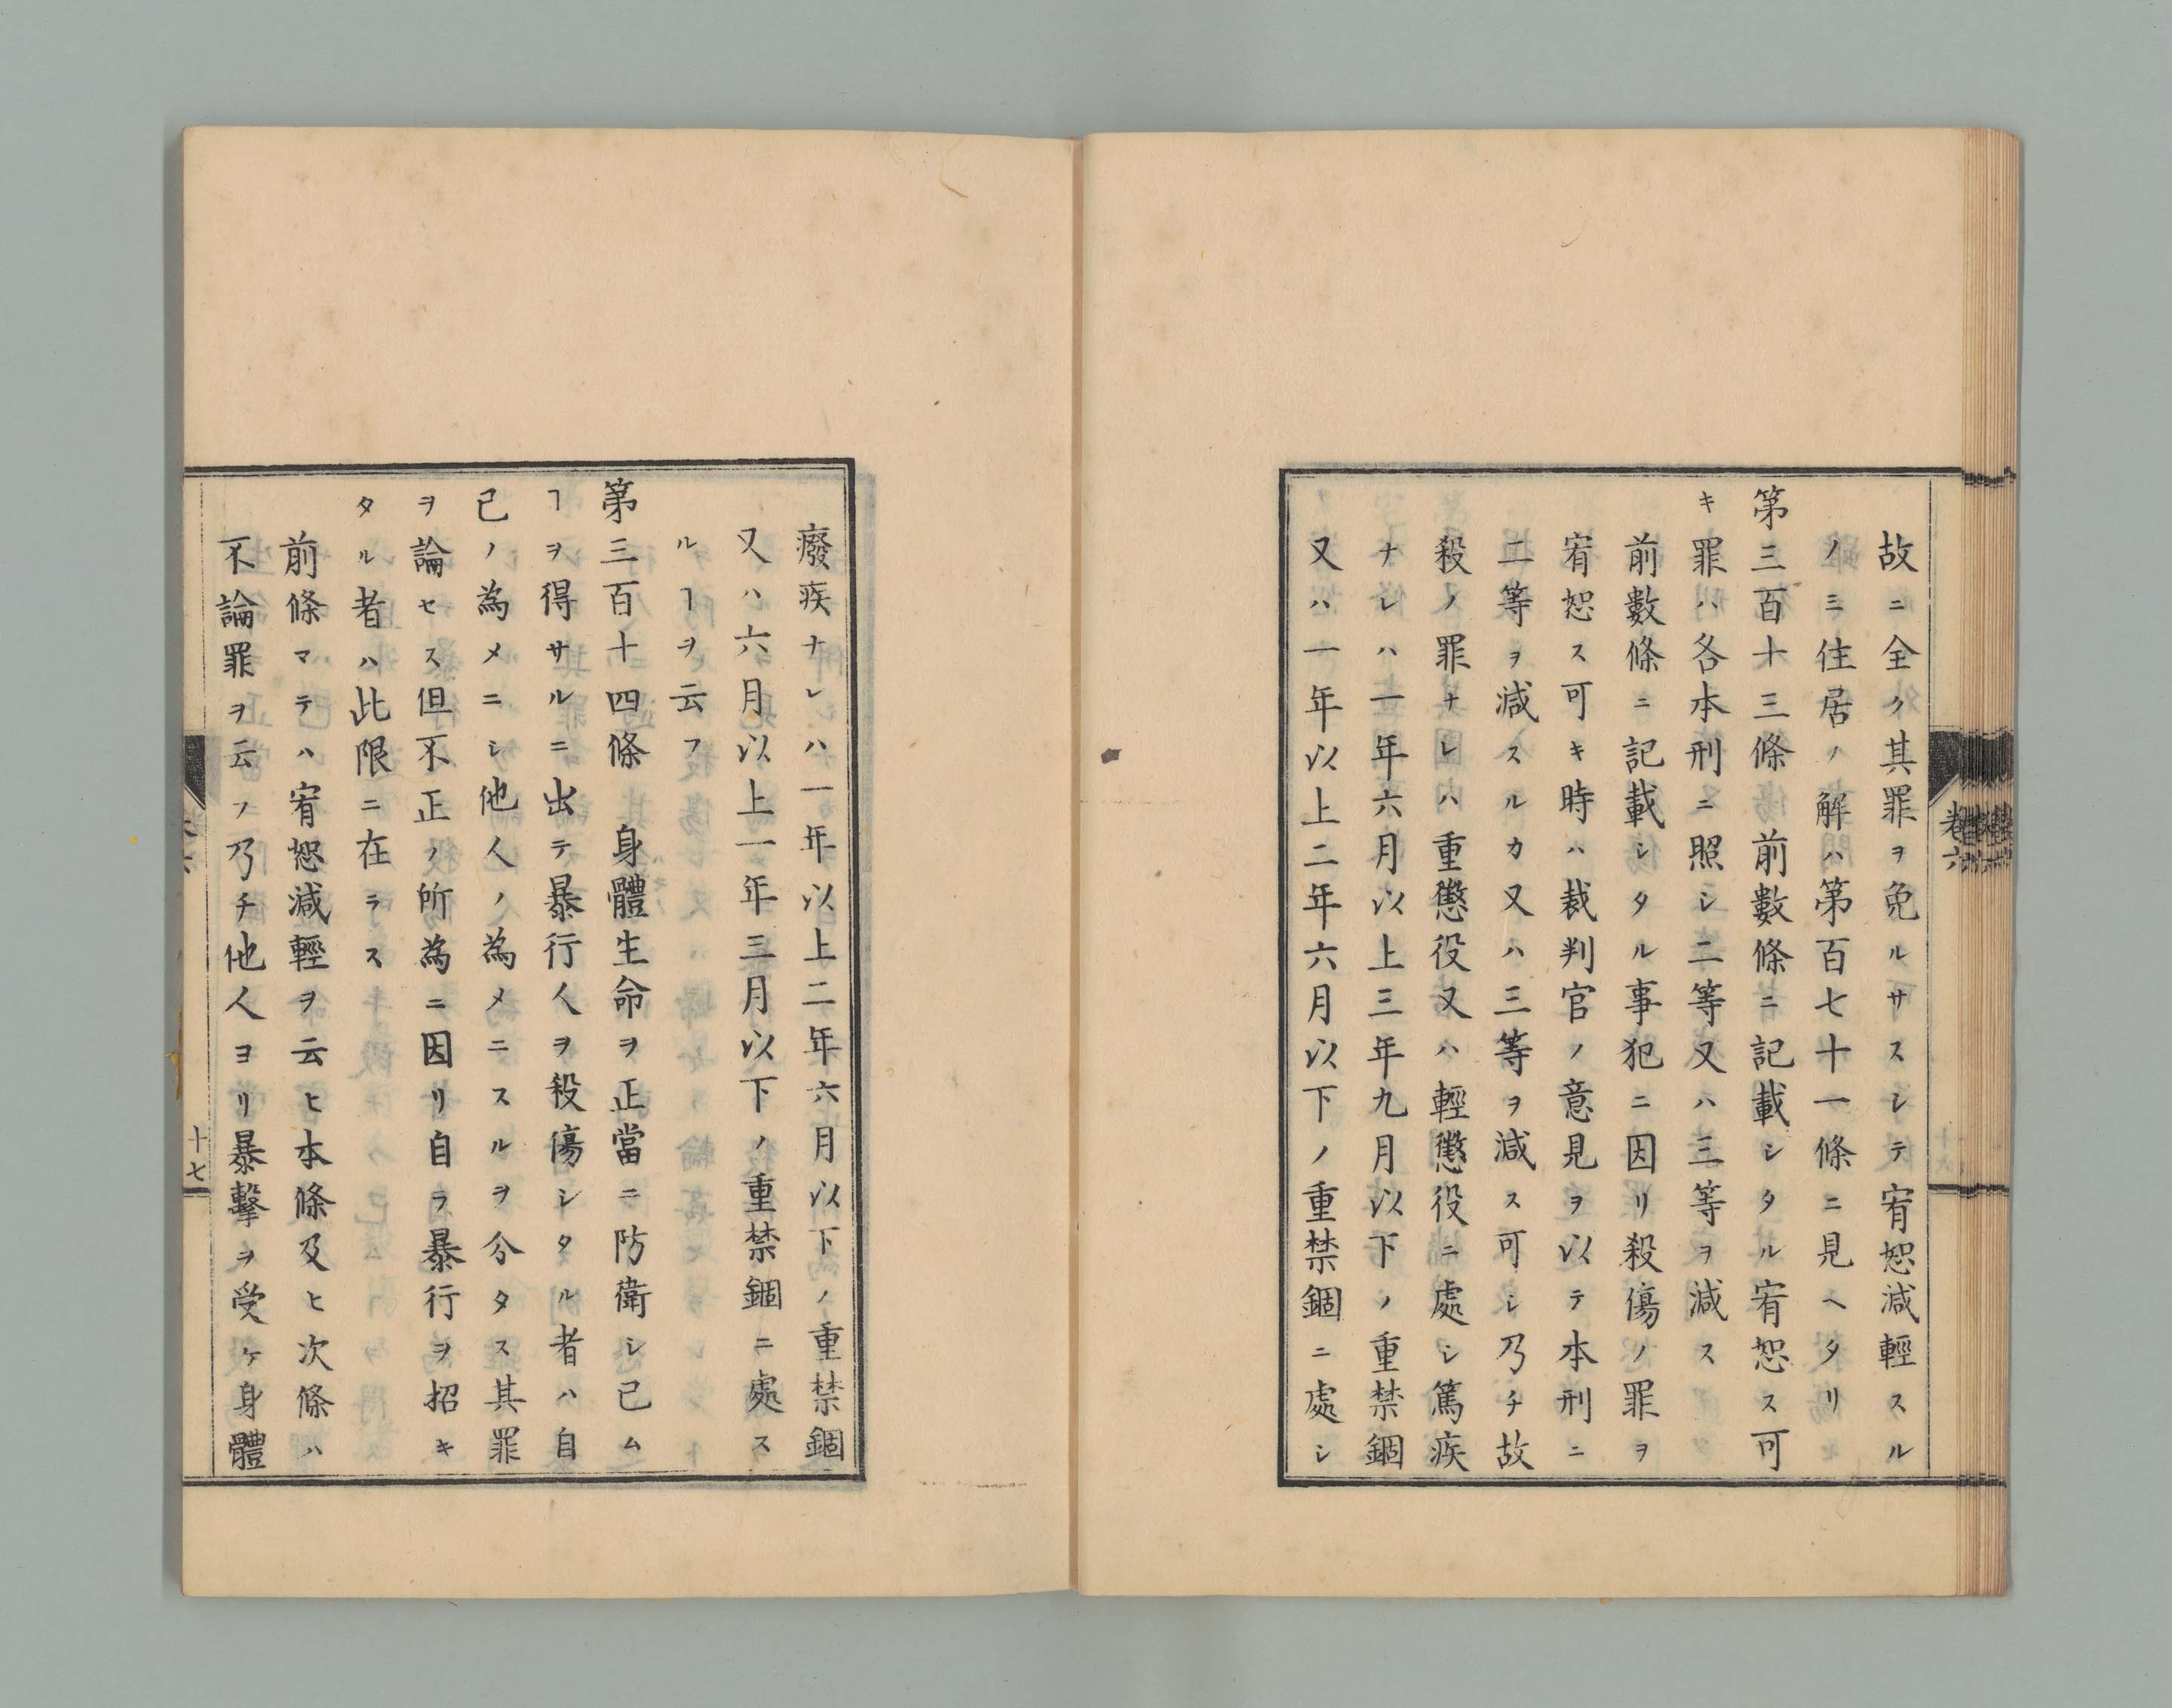 故ニ全ク其罪ヲ免ルサスシテ宥恕減輕スル
ノミ住居ノ解ハ第百七十一條ニ見ヘタリ
第三百十三條 前數條ニ記載シタル宥恕ス可
キ罪ハ各本刑ニ照シ二等又ハ三等ヲ減ス
前數條ニ記載シタル事犯ニ因リ殺傷ノ罪ヲ
宥恕ス可キ時ハ裁判官ノ意見ヲ以テ本刑ニ
二等ヲ減スルカ又ハ三等ヲ減ス可シ乃チ故
殺ノ罪ナレハ重懲役又ハ輕懲役ニ處シ篤疾
ナレハ一年六月以上三年九月以下ノ重禁錮
又ハ一年以上二年六月以下ノ重禁錮ニ處シ
卷六
廢疾ナレハ一年以上二年六月以下ノ重禁錮
又ハ六月以上一年三月以下ノ重禁錮ニ處ス
ルヿヲ云フ
第三百十四條 身體生命ヲ正當ニ防衛シ已ム
ヿヲ得サルニ出テ暴行人ヲ殺傷シタル者ハ自
己ノ為メニシ他人ノ為メニスルヲ分タス其罪
ヲ論セス但不正ノ所為ニ因リ自ラ暴行ヲ招キ
タル者ハ此限ニ在ラス
前條マテハ宥恕減輕ヲ云ヒ本條及ヒ次條ハ
不論罪ヲ云フ乃チ他人ヨリ暴擊ヲ受ケ身體
十七